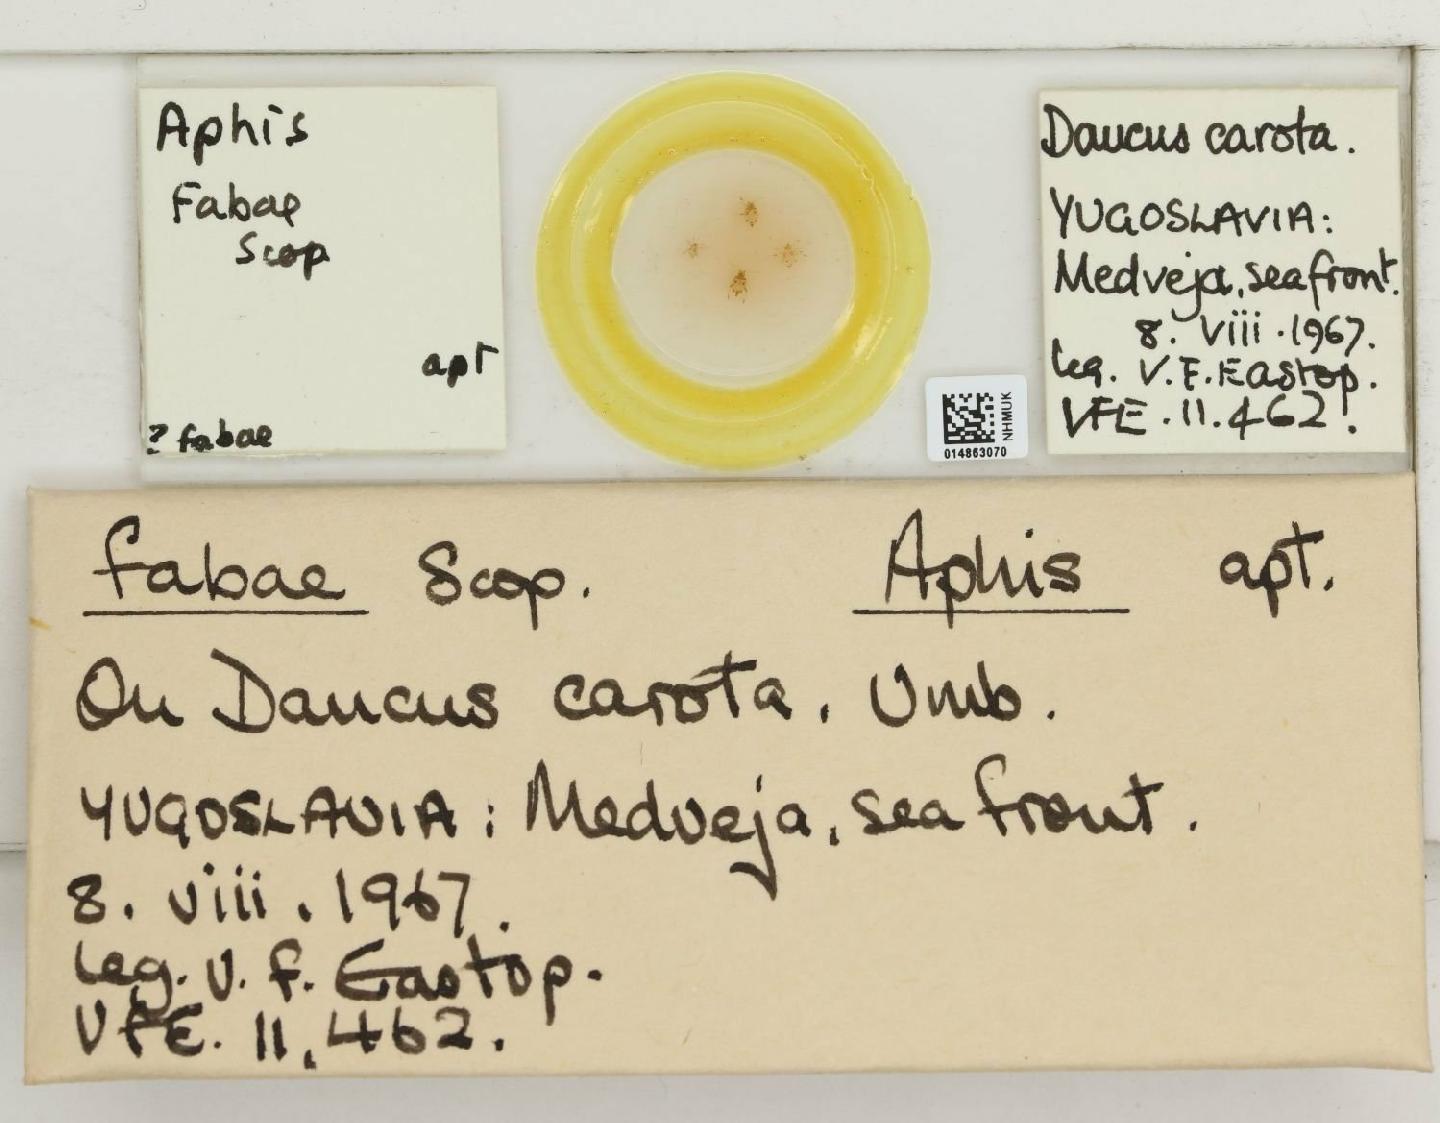 Aphis
Fabae
Scop
apt
? fabae
NHMUK
014863070
Daucus carota.
YUGOSLAVIA:
Medveja, sea front.
8. viii. 1967.
leg. V. F. Eastop.
VFE. 11.462!
fabae Scop. Aphis apt.
On Daucus carota. Umb.
YUGOSLAVIA: Medveja, sea front.
8. viii. 1967.
leg. V. F. Eastop.
VFE. 11,462.